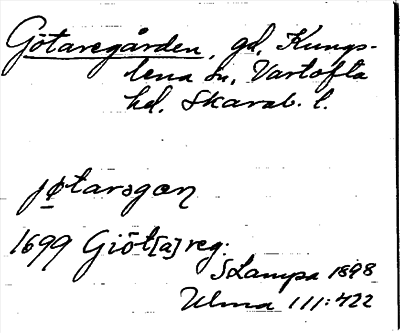 Götaregården, gd, Kungs-
lena sn, Vartofta
hd. Skarab. l.
jøtaragan
1699 Giöt[a]reg:
SLampa 1898
Ulma 111:422